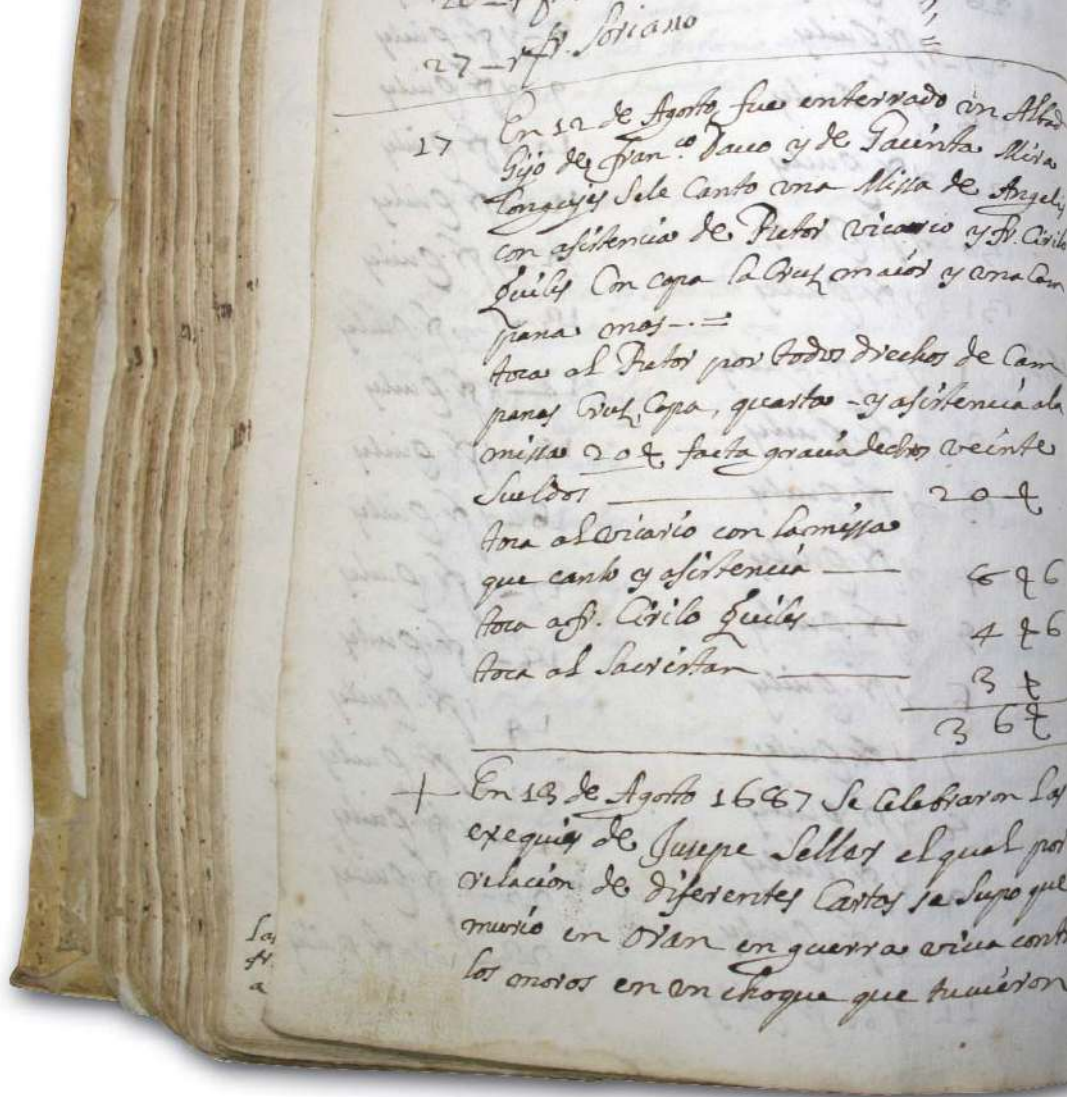 27 – fr. Soriano
17 En 12 de Agosto fue enterrado un Albad
hijo de Fran.co y de Jacinta Mira
conguejes sele Canto una Missa de Angeles
con asistencia de Retor vicario y fr. Cirilo
Quiles Con capa la Cruz maior y una Cam
pana mas –. =
toca al Retor por todos drechos de Cam
panas Cruz, Capa, quarta – y asistencia ala
missa 20 ₰ facta gracia dechos veinte
Sueldos 20 ₰
toca al vicario con la missa
que canto y asistencia 6 ₰ 6
toca a fr. Cirilo Quiles 4 ₰ 6
toca al Sacristan 3 ₰
36 ₰
+ En 13 de Agosto 1687 Se Celebraron Las
exequias de Jusepe Selles el qual por
relación de diferentes Cartas se Supo que
murio en Oran en guerra viva cont
los moros en un choque que tuvieron
Las
fr.
a